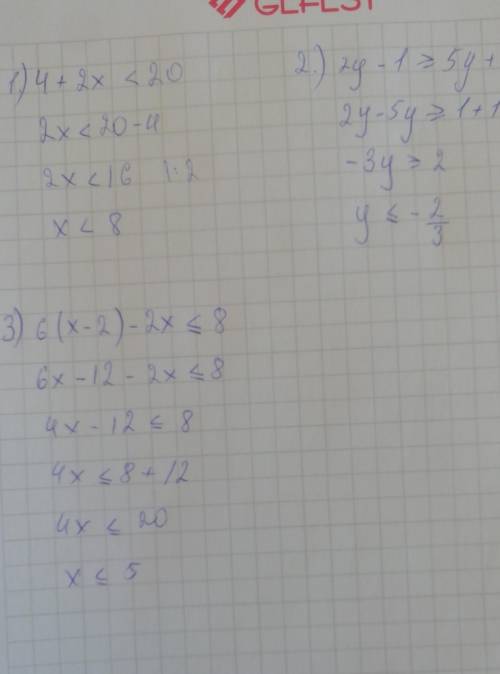 GEFEST
1) 4 + 2x < 20
2x < 20 - 4
2x < 16 | : 2
x < 8
2.) 2y - 1 ≥ 5y +
2y - 5y ≥ 1 + 1
-3y ≥ 2
y ≤ - 2/3
3) 6(x - 2) - 2x ≤ 8
6x - 12 - 2x ≤ 8
4x - 12 ≤ 8
4x ≤ 8 + 12
4x ≤ 20
x ≤ 5